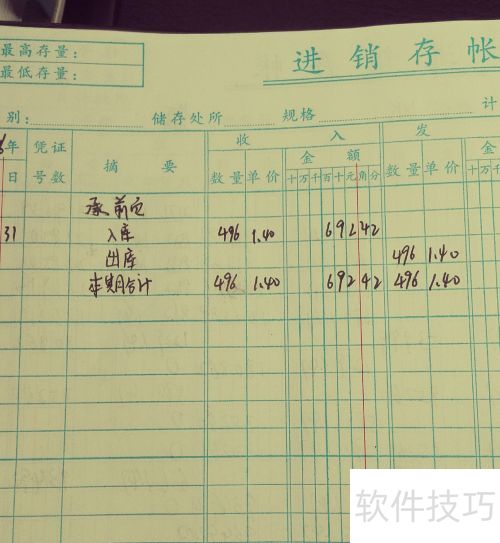 最高存量：
最低存量：
进销存帐
别： 储存处所 规格 计
年 凭证 摘要 收入 发
日 号数 数量 单价 金额 数量 单价 金
十万千百十元角分 十万千
承前页
31 入库 496 1.40 69242
出库 496 1.40
本期合计 496 1.40 69242 496 1.40
软件技巧